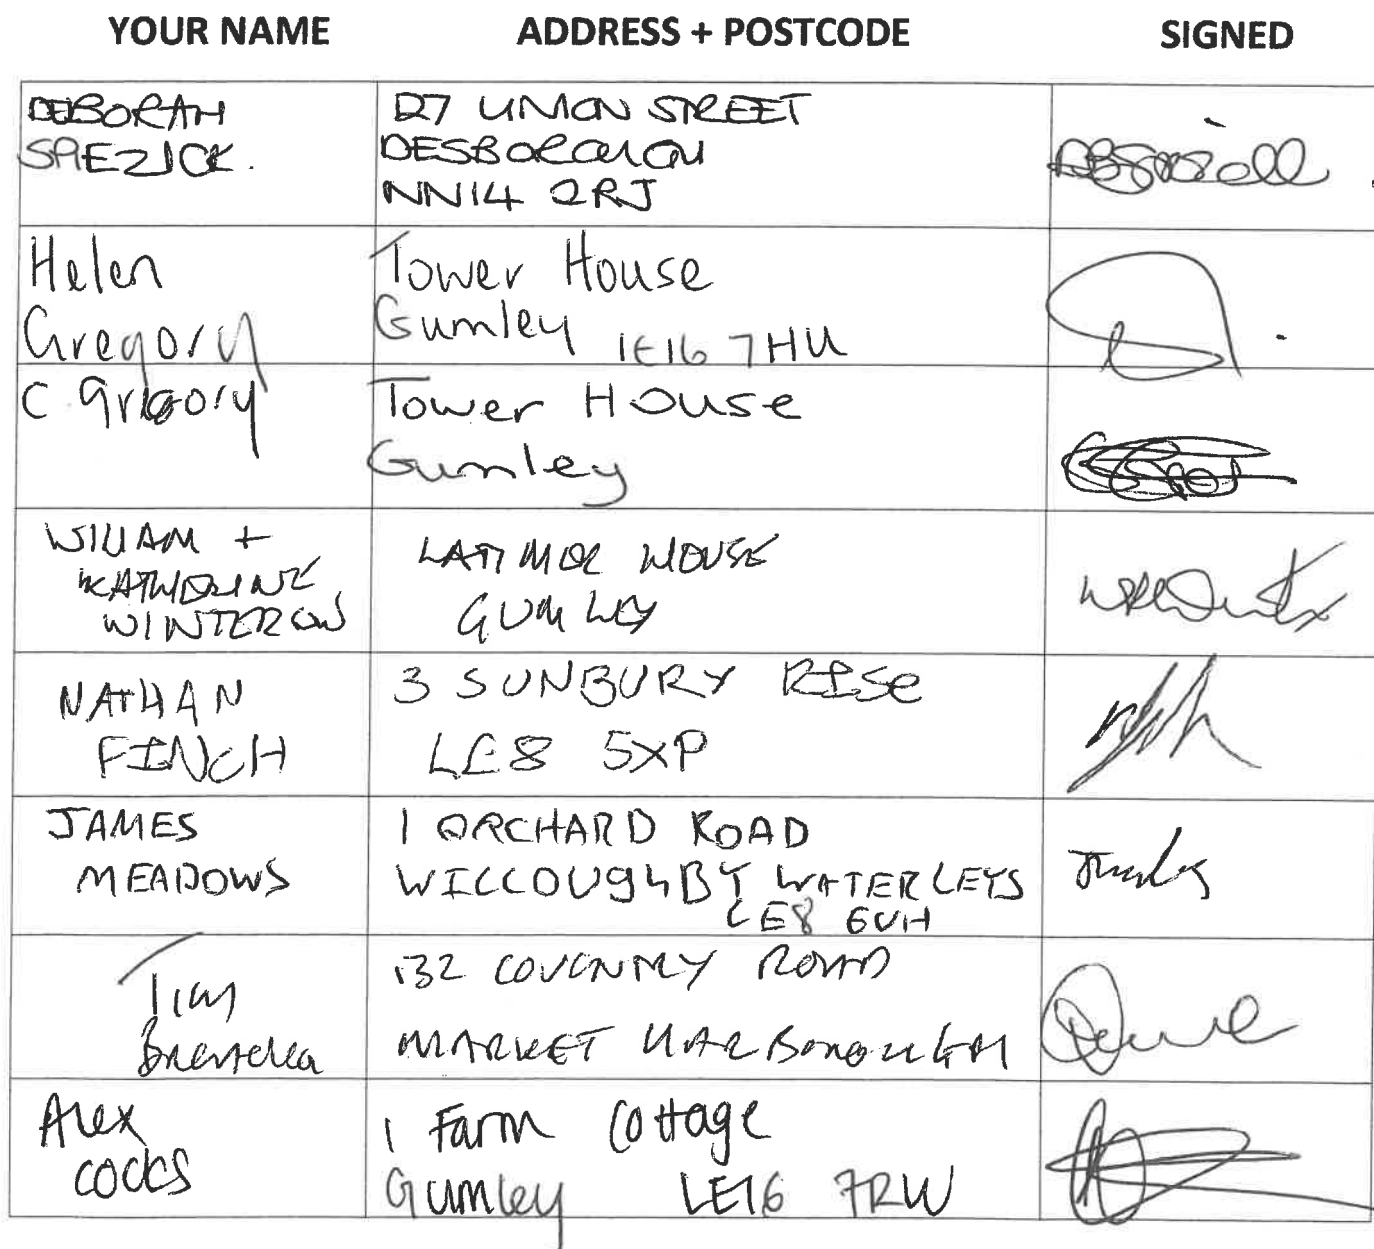 YOUR NAME ADDRESS + POSTCODE SIGNED
DEBORAH
SPEZICK.
127 UNION STREET
DESBOROUGH
NN14 2RJ
Helen
Gregory
Tower House
Gumley LE16 7HU
C Gregory
Tower House
Gumley
WILLIAM +
KATHERINE
WINTERTON
LATIMER HOUSE
GUMLEY
NATHAN
FINCH
3 SUNBURY RISE
LE8 5XP
JAMES
MEADOWS
1 ORCHARD ROAD
WILLOUGHBY WATERLEYS
LE8 6UH
Tim
132 COVENTRY ROAD
MARKET HARBOROUGH
Alex
COCKS
1 Farm Cottage
Gumley LE16 7RW